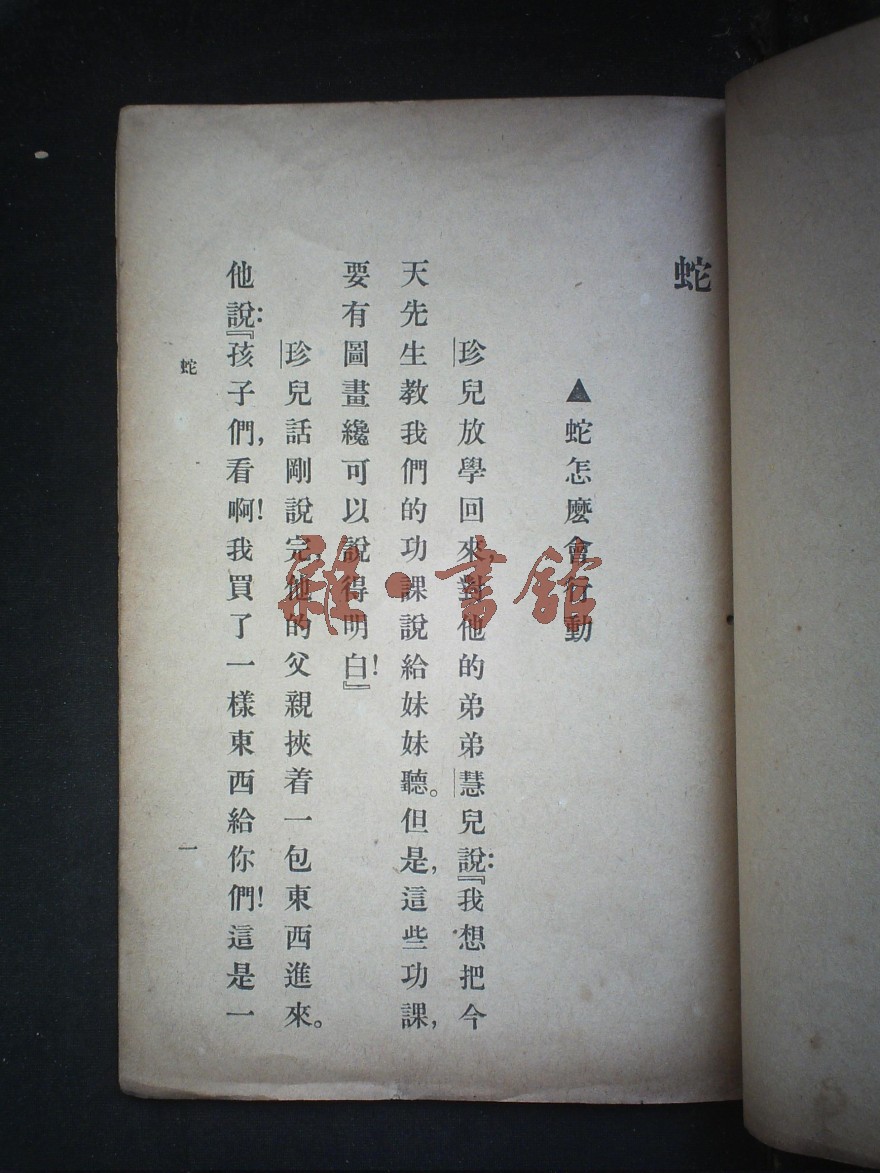 蛇
▲蛇怎麽會行動
珍兒放學回來,對他的弟弟慧兒說:『我想把今
天先生教我們的功課說給妹妹聽。但是,這些功課,
要有圖畫纔可以說得明白!』
珍兒話剛說完,他的父親挾着一包東西進來。
他說:『孩子們,看啊!我買了一樣東西給你們!這是一
蛇
一
雜·書館